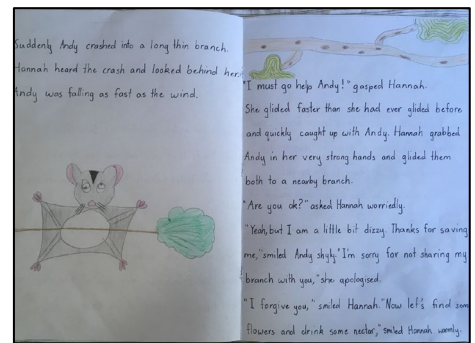 Suddenly Andy crashed into a long thin branch.
Hannah heard the crash and looked behind her.
Andy was falling as fast as the wind.
"I must go help Andy!" gasped Hannah.
She glided faster than she had ever glided before
and quickly caught up with Andy. Hannah grabbed
Andy in her very strong hands and glided them
both to a nearby branch.
"Are you ok?" asked Hannah worriedly.
"Yeah, but I am a little bit dizzy. Thanks for saving
me," smiled Andy shyly. "I'm sorry for not sharing my
branch with you," she apologised.
"I forgive you," smiled Hannah. "Now let's find some
flowers and drink some nectar," smiled Hannah warmly.